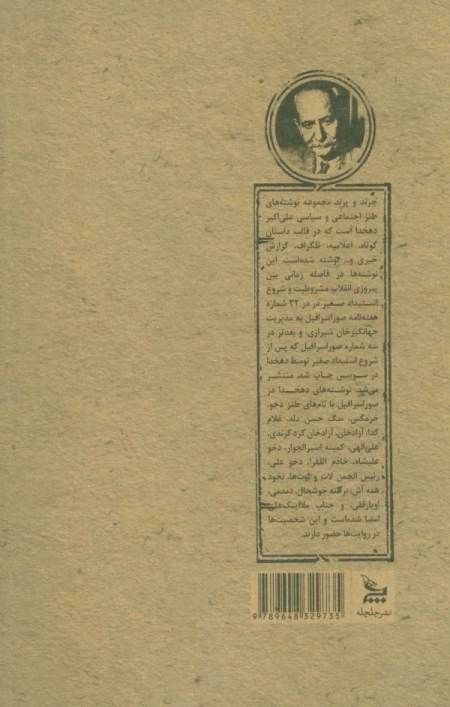 چرند و پرند مجموعه نوشته‌های
طنز اجتماعی و سیاسی علی‌اکبر
دهخدا است که در قالب داستان
کوتاه، اعلامیه، تلگراف، گزارش
خبری و... نوشته شده‌است. این
نوشته‌ها در فاصله زمانی بین
پیروزی انقلاب مشروطیت و شروع
استبداد صغیر در در ۳۲ شماره
هفته‌نامه صوراسرافیل به مدیریت
جهانگیرخان شیرازی، و بعدتر در
سه شماره صوراسرافیل که پس از
شروع استبداد صغیر توسط دهخدا
در سوییس چاپ شد، منتشر
می‌شد. نوشته‌های دهخدا در
صوراسرافیل با نام‌های طنز دخو،
خرمگس، سگ حسن دله، غلام
گدا، آزادخان، آزادخان کرد کرندی،
علی‌الهی، کمینه اسیرالجوال، دخو
علیشاه، خادم الفقرا، دخو علی،
رئیس انجمن لات و لوت‌ها، نخود
همه آش، برهنه خوشحال، دمدمی،
اویارقلی، و جناب ملااینک‌علی
امضا شده‌است و این شخصیت‌ها
در روایت‌ها حضور دارند.
نشر چلچله
9 789648 329735